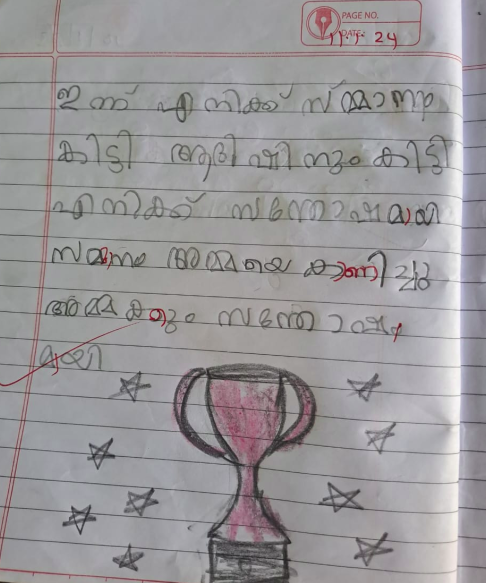 PAGE NO.
DATE: 11-7-24
ഇന്ന് എനിക്ക് സമ്മാനം
കിട്ടി ആദിഷിനും കിട്ടി
എനിക്ക് സന്തോഷമായി
സമ്മാനം അമ്മയെ കാണിച്ചു
അമ്മക്കും സന്തോഷ
മായി